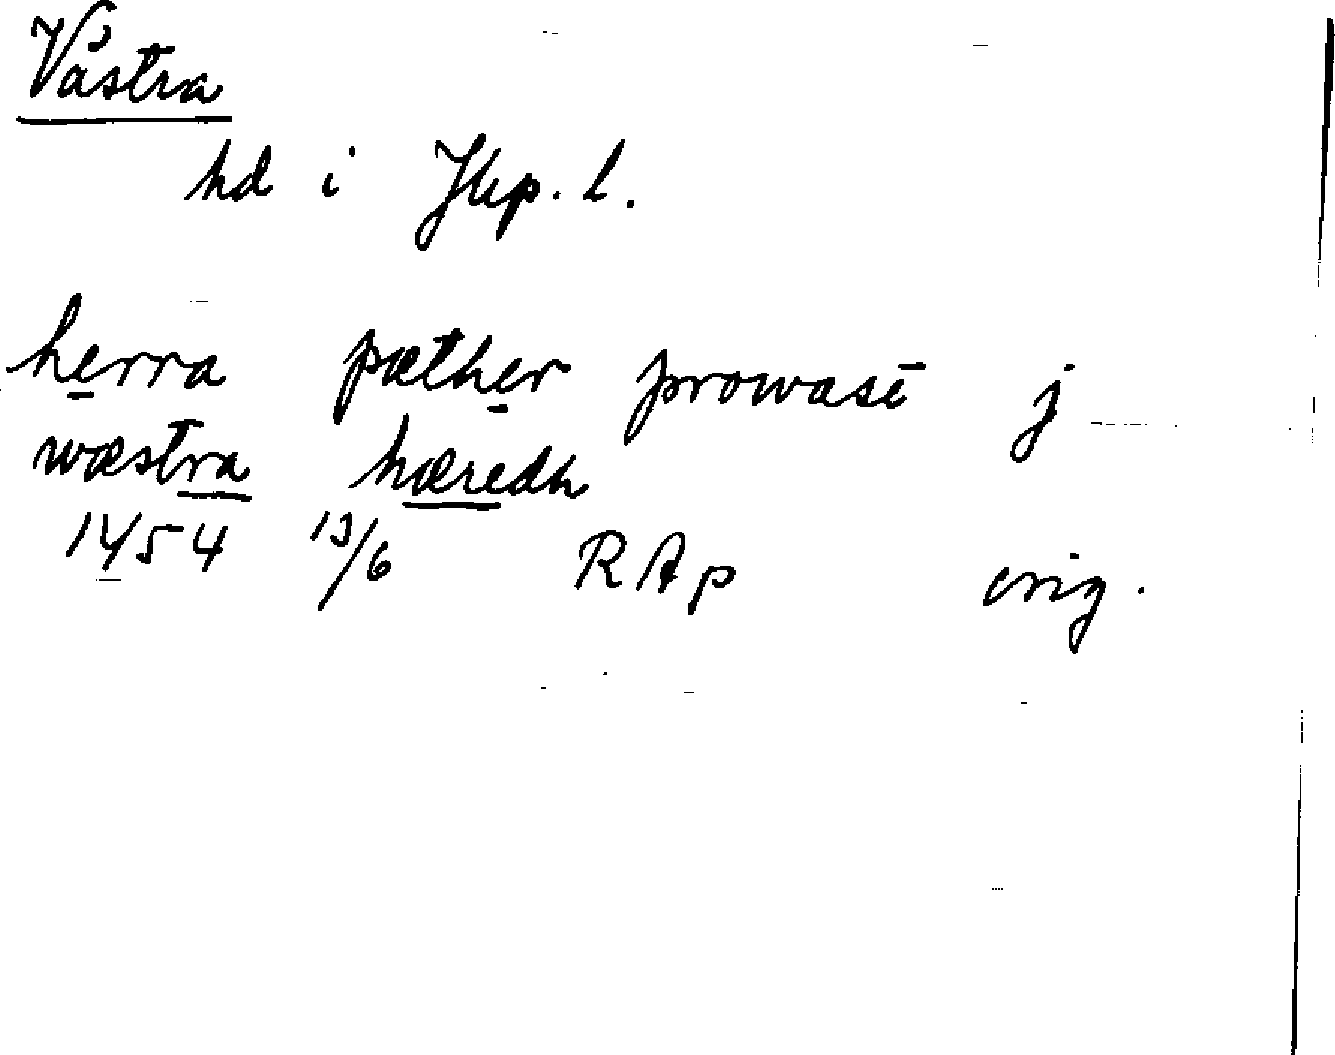 Västra
hd i Jkp. l.
herra pæther prowast j
wæstra hæredh
1454 13/6 RAp orig.